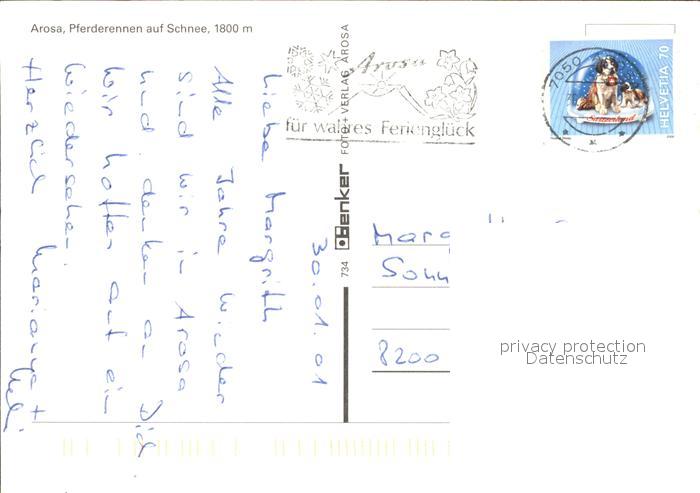 Arosa, Pferderennen auf Schnee, 1800 m
Arosa
für wahres Ferienglück
7050
HELVETIA 70
Switzerland
734 Benker FOTO+VERLAG AROSA
30.01.01
Liebe Margrith
Alle Jahre wieder
sind wir in Arosa
und denken an Dich
Wir hoffen auf ein
Wiedersehen.
Herzlich Marianne +
Marg
Sonn
8200
privacy protection
Datenschutz